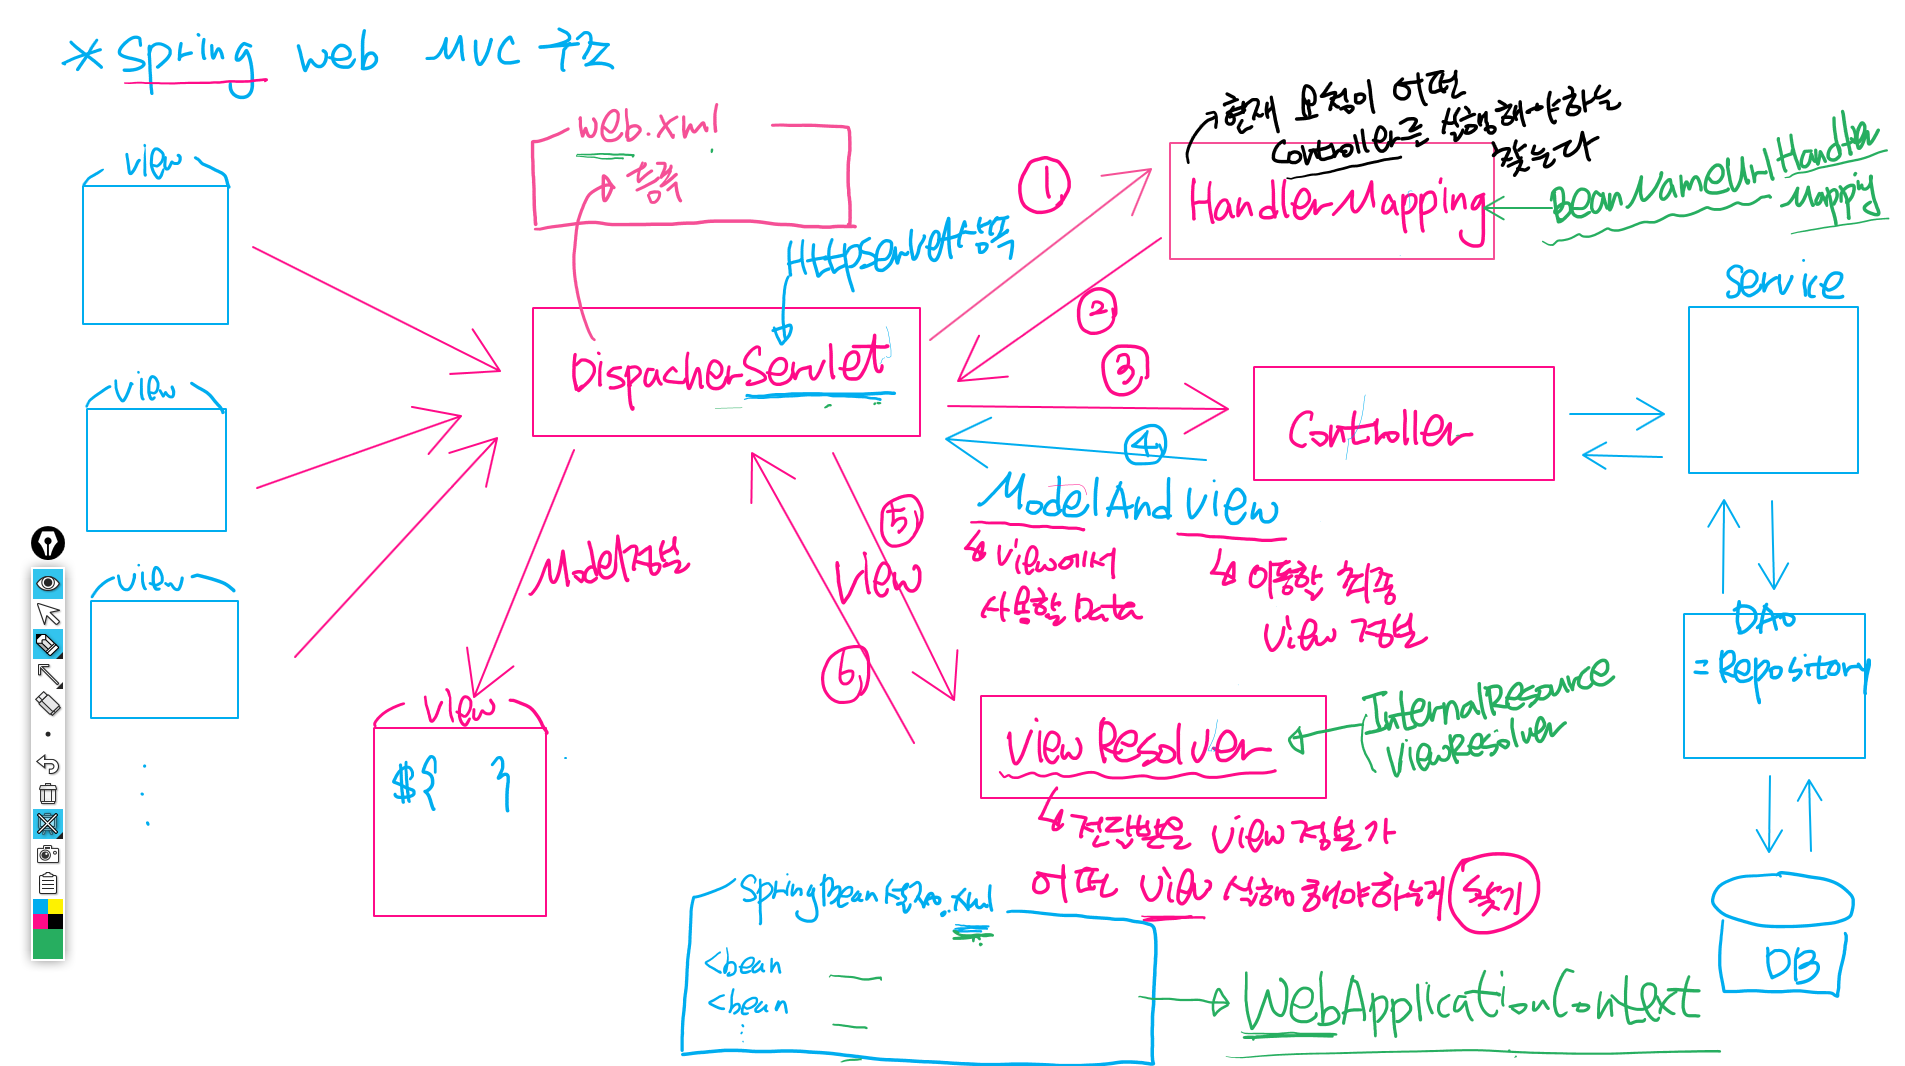 * Spring web MVC 구조
view
view
view
web.xml
등록
HttpServlet상속
DispacherServlet
①
②
③
④
⑤
⑥
현재 요청이 어떤
Controller를 실행해야하는
찾는다
HandlerMapping
BeanNameUrlHandler
Mapping
Service
Controller
ModelAndView
↳ View에서
사용할 Data
↳ 이동할 최종
View 정보
Model정보
View
DAO
= Repository
view
${ }
ViewResolver
InternalResource
ViewResolver
↳ 전달받은 View 정보가
어떤 View 실행해야하는지 찾기
SpringBean설정.xml
<bean
<bean
:
WebApplicationContext
DB